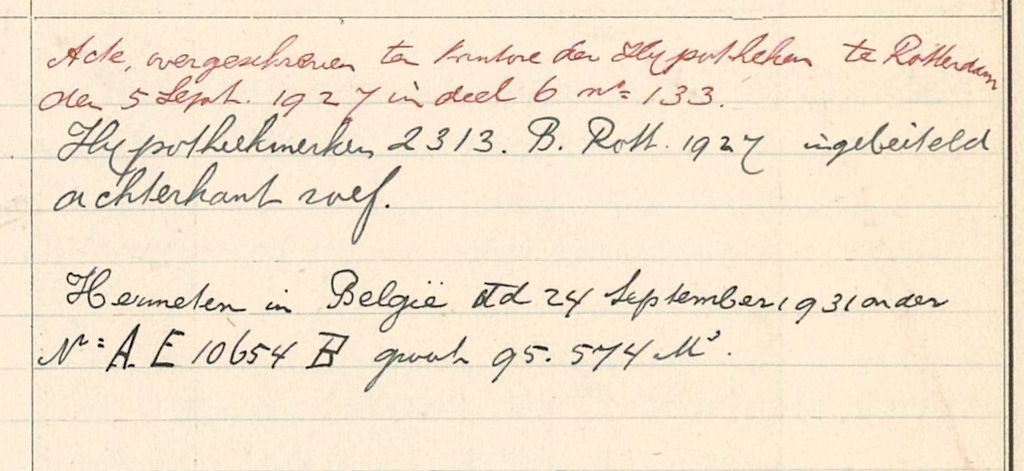 Acte, overgeschreven ten kantore der Hypotheken te Rotterdam
den 5 Sept. 1927 in deel 6 no= 133.
Hypotheekmerken 2313. B. Rott. 1927 ingebeiteld
achterkant roef.
Hermeten in België dd 24 September 1931 onder
No= A.E 10654 B groot 95.574 M³.